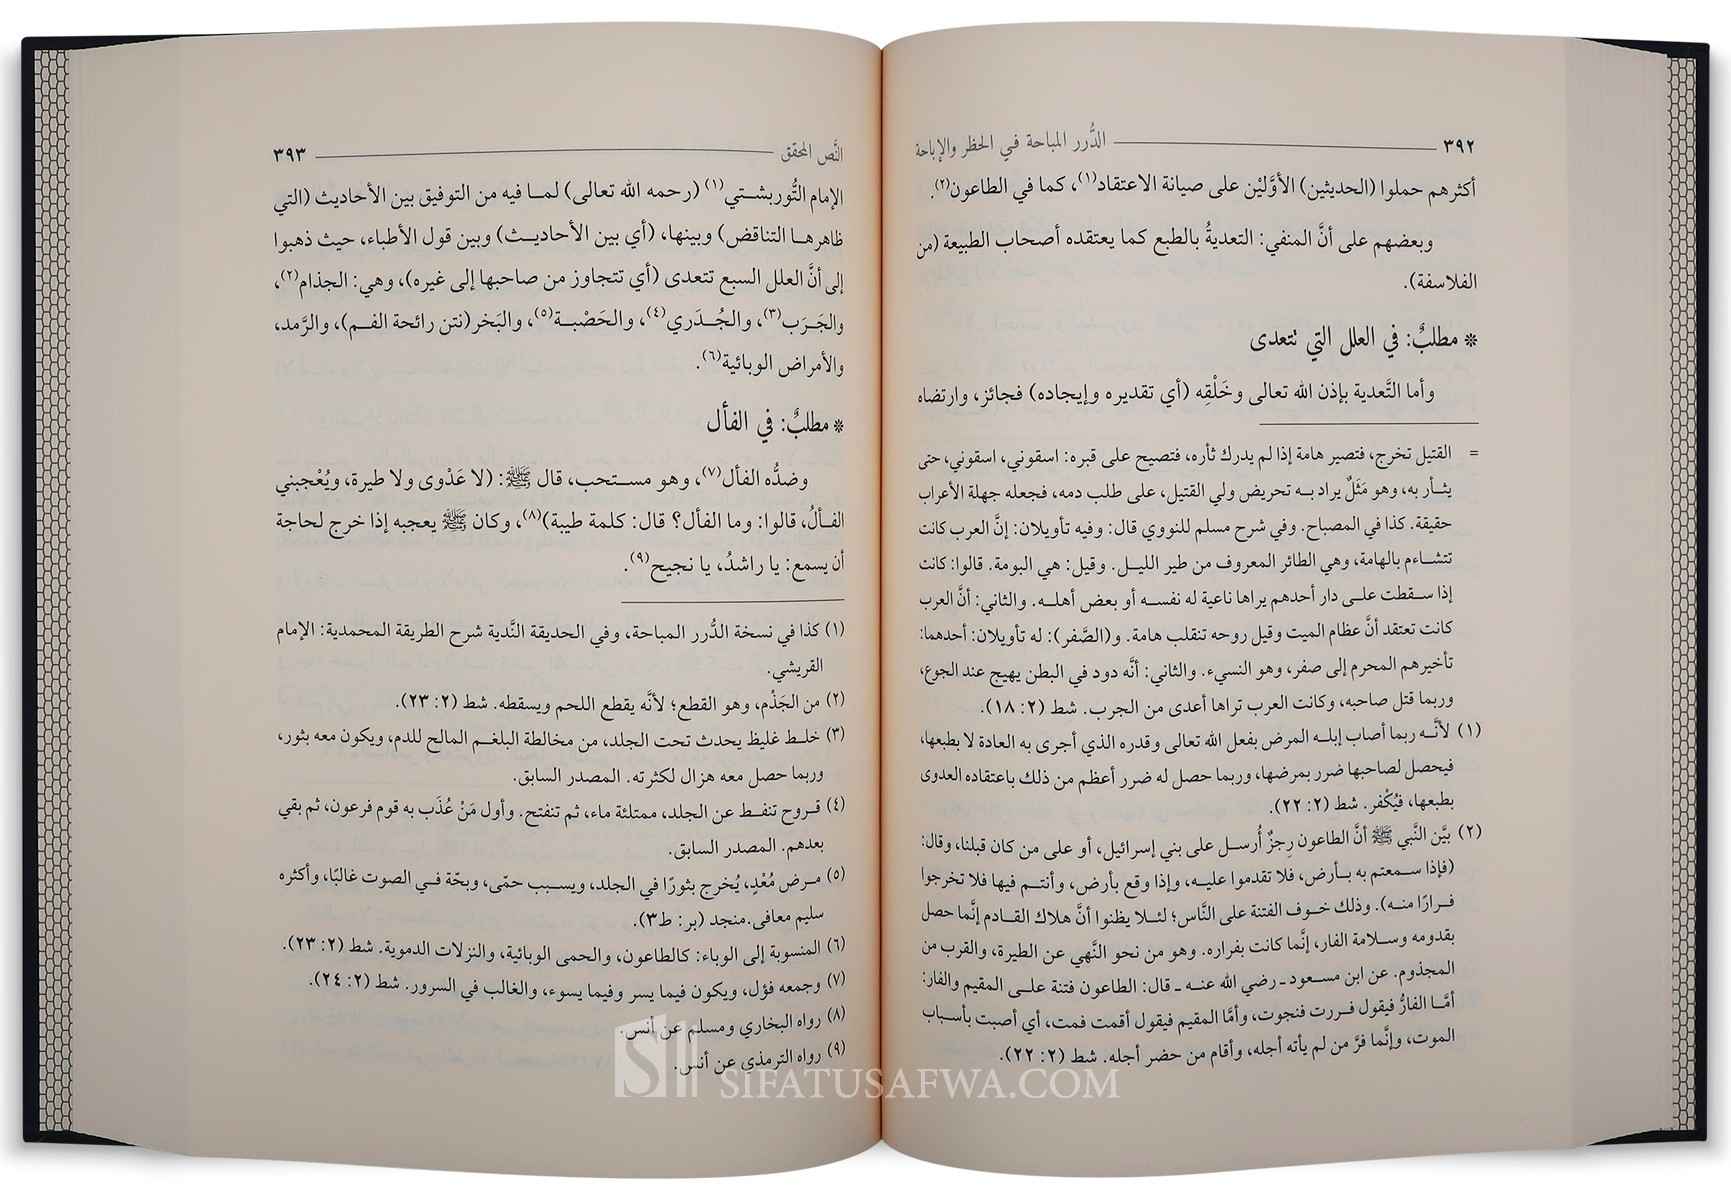 ٣٩٢ الدُّرر المباحة في الحظر والإباحة
أكثرهم حملوا (الحديثين) الأوَّليْن على صيانة الاعتقاد(١)، كما في الطاعون(٢).
وبعضهم على أنَّ المنفي: التعديةُ بالطبع كما يعتقده أصحاب الطبيعة (من
الفلاسفة).
* مطلبٌ: في العلل التي تتعدى
وأما التَّعدية بإذن الله تعالى وخَلْقِه (أي تقديره وإيجاده) فجائز، وارتضاه
= القتيل تخرج، فتصير هامة إذا لم يدرك ثأره، فتصيح على قبره: اسقوني، اسقوني، حتى
يثأر به، وهو مَثَلٌ يراد به تحريض ولي القتيل، على طلب دمه، فجعله جهلة الأعراب
حقيقة. كذا في المصباح. وفي شرح مسلم للنووي قال: وفيه تأويلان: إنَّ العرب كانت
تتشاءم بالهامة، وهي الطائر المعروف من طير الليل. وقيل: هي البومة. قالوا: كانت
إذا سقطت على دار أحدهم يراها ناعية له نفسه أو بعض أهله. والثاني: أنَّ العرب
كانت تعتقد أنَّ عظام الميت وقيل روحه تنقلب هامة. و(الصَّفر): له تأويلان: أحدهما:
تأخيرهم المحرم إلى صفر، وهو النسيء. والثاني: أنَّه دود في البطن يهيج عند الجوع،
وربما قتل صاحبه، وكانت العرب تراها أعدى من الجرب. شط (٢: ١٨).
(١) لأنَّه ربما أصاب إبله المرض بفعل الله تعالى وقدره الذي أجرى به العادة لا بطبعها،
فيحصل لصاحبها ضرر بمرضها، وربما حصل له ضرر أعظم من ذلك باعتقاده العدوى
بطبعها، فيُكْفر. شط (٢: ٢٢).
(٢) بيَّن النَّبي ﷺ أنَّ الطاعون رِجزٌ أُرسل على بني إسرائيل، أو على من كان قبلنا، وقال:
(فإذا سمعتم به بأرض، فلا تقدموا عليه، وإذا وقع بأرض، وأنتم فيها فلا تخرجوا
فرارًا منه). وذلك خوف الفتنة على النَّاس؛ لئلا يظنوا أنَّ هلاك القادم إنَّما حصل
بقدومه وسلامة الفار، إنَّما كانت بفراره. وهو من نحو النَّهي عن الطيرة، والقرب من
المجذوم. عن ابن مسعود ـ رضي الله عنه ـ قال: الطاعون فتنة على المقيم والفار:
أمَّا الفارُّ فيقول فررت فنجوت، وأمَّا المقيم فيقول أقمت فمت، أي أصبت بأسباب
الموت، وإنَّما فرَّ من لم يأته أجله، وأقام من حضر أجله. شط (٢: ٢٢).
النَّص المحقق ٣٩٣
الإمام التُّوربشتي(١) (رحمه الله تعالى) لما فيه من التوفيق بين الأحاديث (التي
ظاهرها التناقض) وبينها، (أي بين الأحاديث) وبين قول الأطباء، حيث ذهبوا
إلى أنَّ العلل السبع تتعدى (أي تتجاوز من صاحبها إلى غيره)، وهي: الجذام(٢)،
والجَرَب(٣)، والجُدَري(٤)، والحَصْبة(٥)، والبَخر(نتن رائحة الفم)، والرَّمد،
والأمراض الوبائية(٦).
* مطلبٌ: في الفأل
وضدُّه الفأل(٧)، وهو مستحب، قال ﷺ: (لا عَدْوى ولا طيرة، ويُعْجبني
الفألُ، قالوا: وما الفأل؟ قال: كلمة طيبة)(٨)، وكان ﷺ يعجبه إذا خرج لحاجة
أن يسمع: يا راشدُ، يا نجيح(٩).
(١) كذا في نسخة الدُّرر المباحة، وفي الحديقة النَّدية شرح الطريقة المحمدية: الإمام
القريشي.
(٢) من الجَذْم، وهو القطع؛ لأنَّه يقطع اللحم ويسقطه. شط (٢: ٢٣).
(٣) خلط غليظ يحدث تحت الجلد، من مخالطة البلغم المالح للدم، ويكون معه بثور،
وربما حصل معه هزال لكثرته. المصدر السابق.
(٤) قروح تنفط عن الجلد، ممتلئة ماء، ثم تنفتح. وأول مَنْ عُذَب به قوم فرعون، ثم بقي
بعدهم. المصدر السابق.
(٥) مرض مُعْدٍ، يُخرج بثورًا في الجلد، ويسبب حمّى، وبحّة في الصوت غالبًا، وأكثره
سليم معافى.منجد (بر: ط٣).
(٦) المنسوبة إلى الوباء: كالطاعون، والحمى الوبائية، والنزلات الدموية. شط (٢: ٢٣).
(٧) وجمعه فؤل، ويكون فيما يسر وفيما يسوء، والغالب في السرور. شط (٢: ٢٤).
(٨) رواه البخاري ومسلم عن أنس.
(٩) رواه الترمذي عن أنس.
SIFATUSAFWA.COM